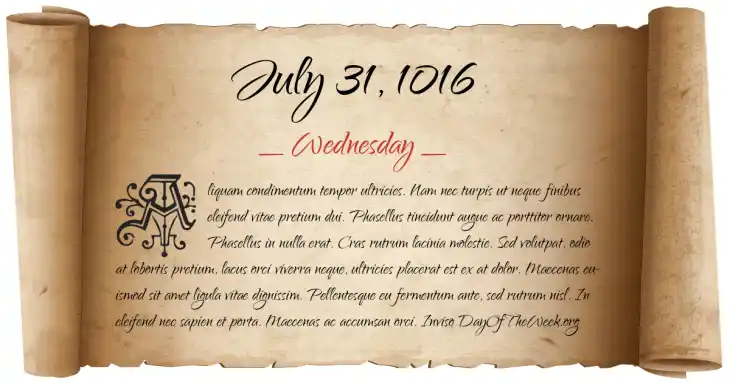 July 31, 1016
— Wednesday —
Aliquam condimentum tempor ultricies. Nam nec turpis ut neque finibus
eleifend vitae pretium dui. Phasellus tincidunt augue ac porttitor ornare.
Phasellus in nulla erat. Cras rutrum lacinia molestie. Sed volutpat, odio
at lobortis pretium, lacus orci viverra neque, ultricies placerat est ex at dolor. Maecenas eu-
ismod sit amet ligula vitae dignissim. Pellentesque eu fermentum ante, sed rutrum nisl. In
eleifend nec sapien et porta. Maecenas ac accumsan orci. Inviso DayOfTheWeek.org